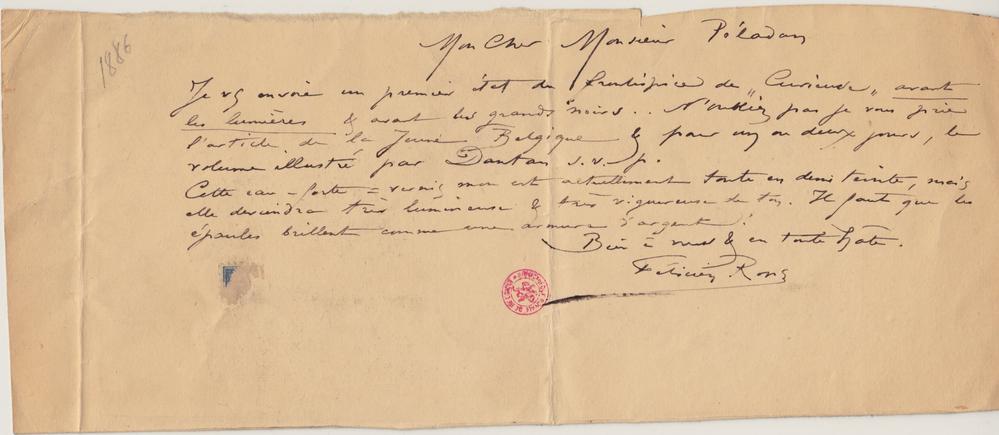 1886
Mon Cher Monsieur Péladan
Je vs envoie un premier état du frontispice de „ Curieuse „ avant
les lumières & avant les grands noirs.. N'oubliez pas je vous prie
l'article de la Jeune Belgique & pour un ou deux jours, le
volume illustré par Dantan s.v.p.
Cette eau-forte = vernis mou est actuellement toute en demi teinte, mais
elle deviendra très lumineuse & très vigoureuse de ton. Il faut que les
épaules brillent comme une armure d'argent !
Bien à vous & en toute hâte.
Félicien Rops